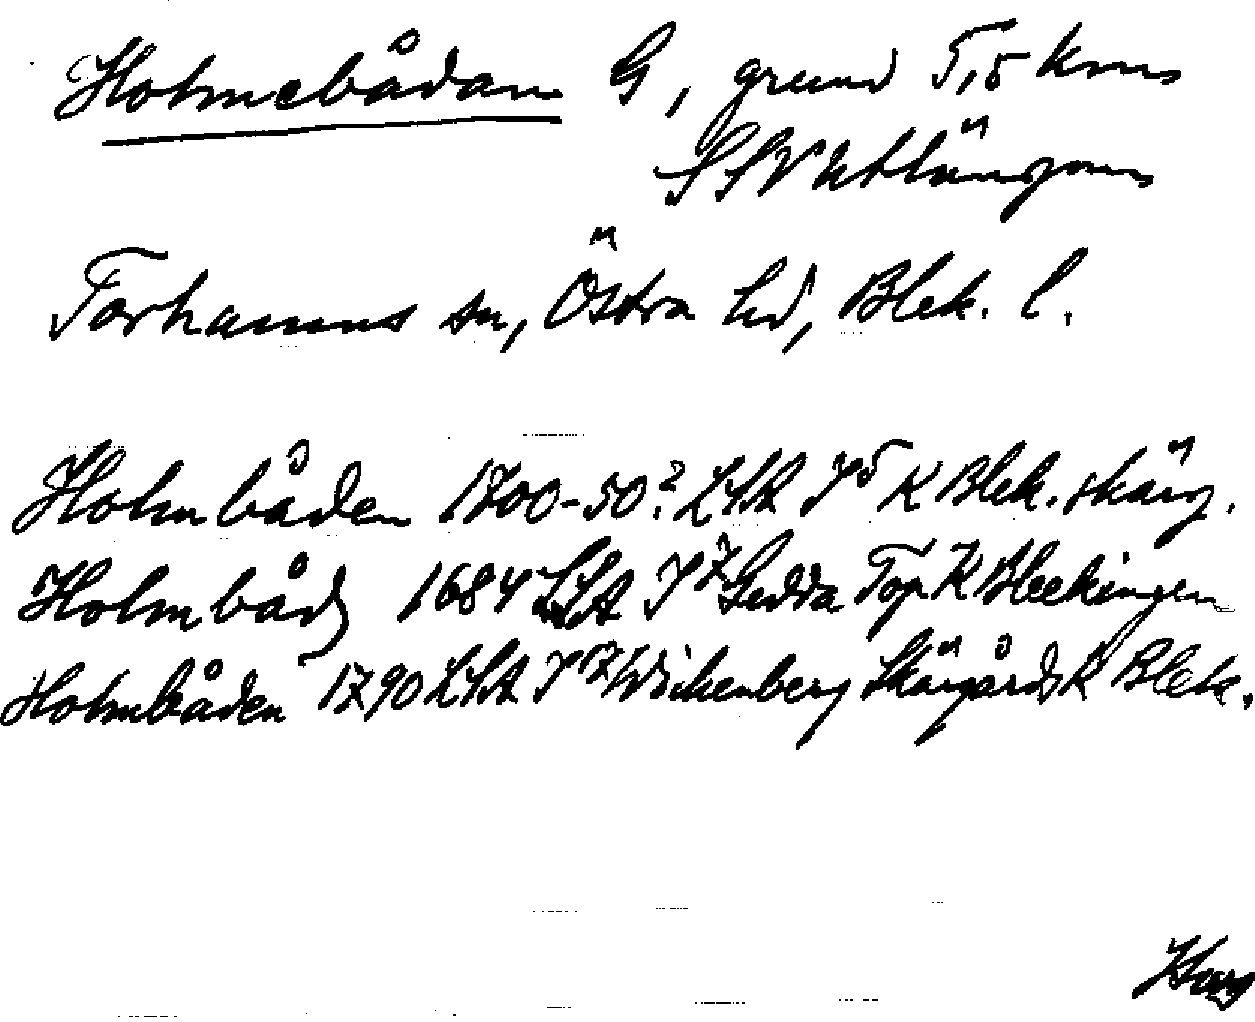 Holmebådan G, grund 5,5 km
SSV Utlängan
Torhamns sn, Östra hd, Blek. l.
Holmbåden 1700-50? LSA K Blek. skärg.
Holmbåd 1684 LSA Gedda Top K Bleckingen
Holmbåden 1790 LSA Wickenberg Skärgårds K Blek.